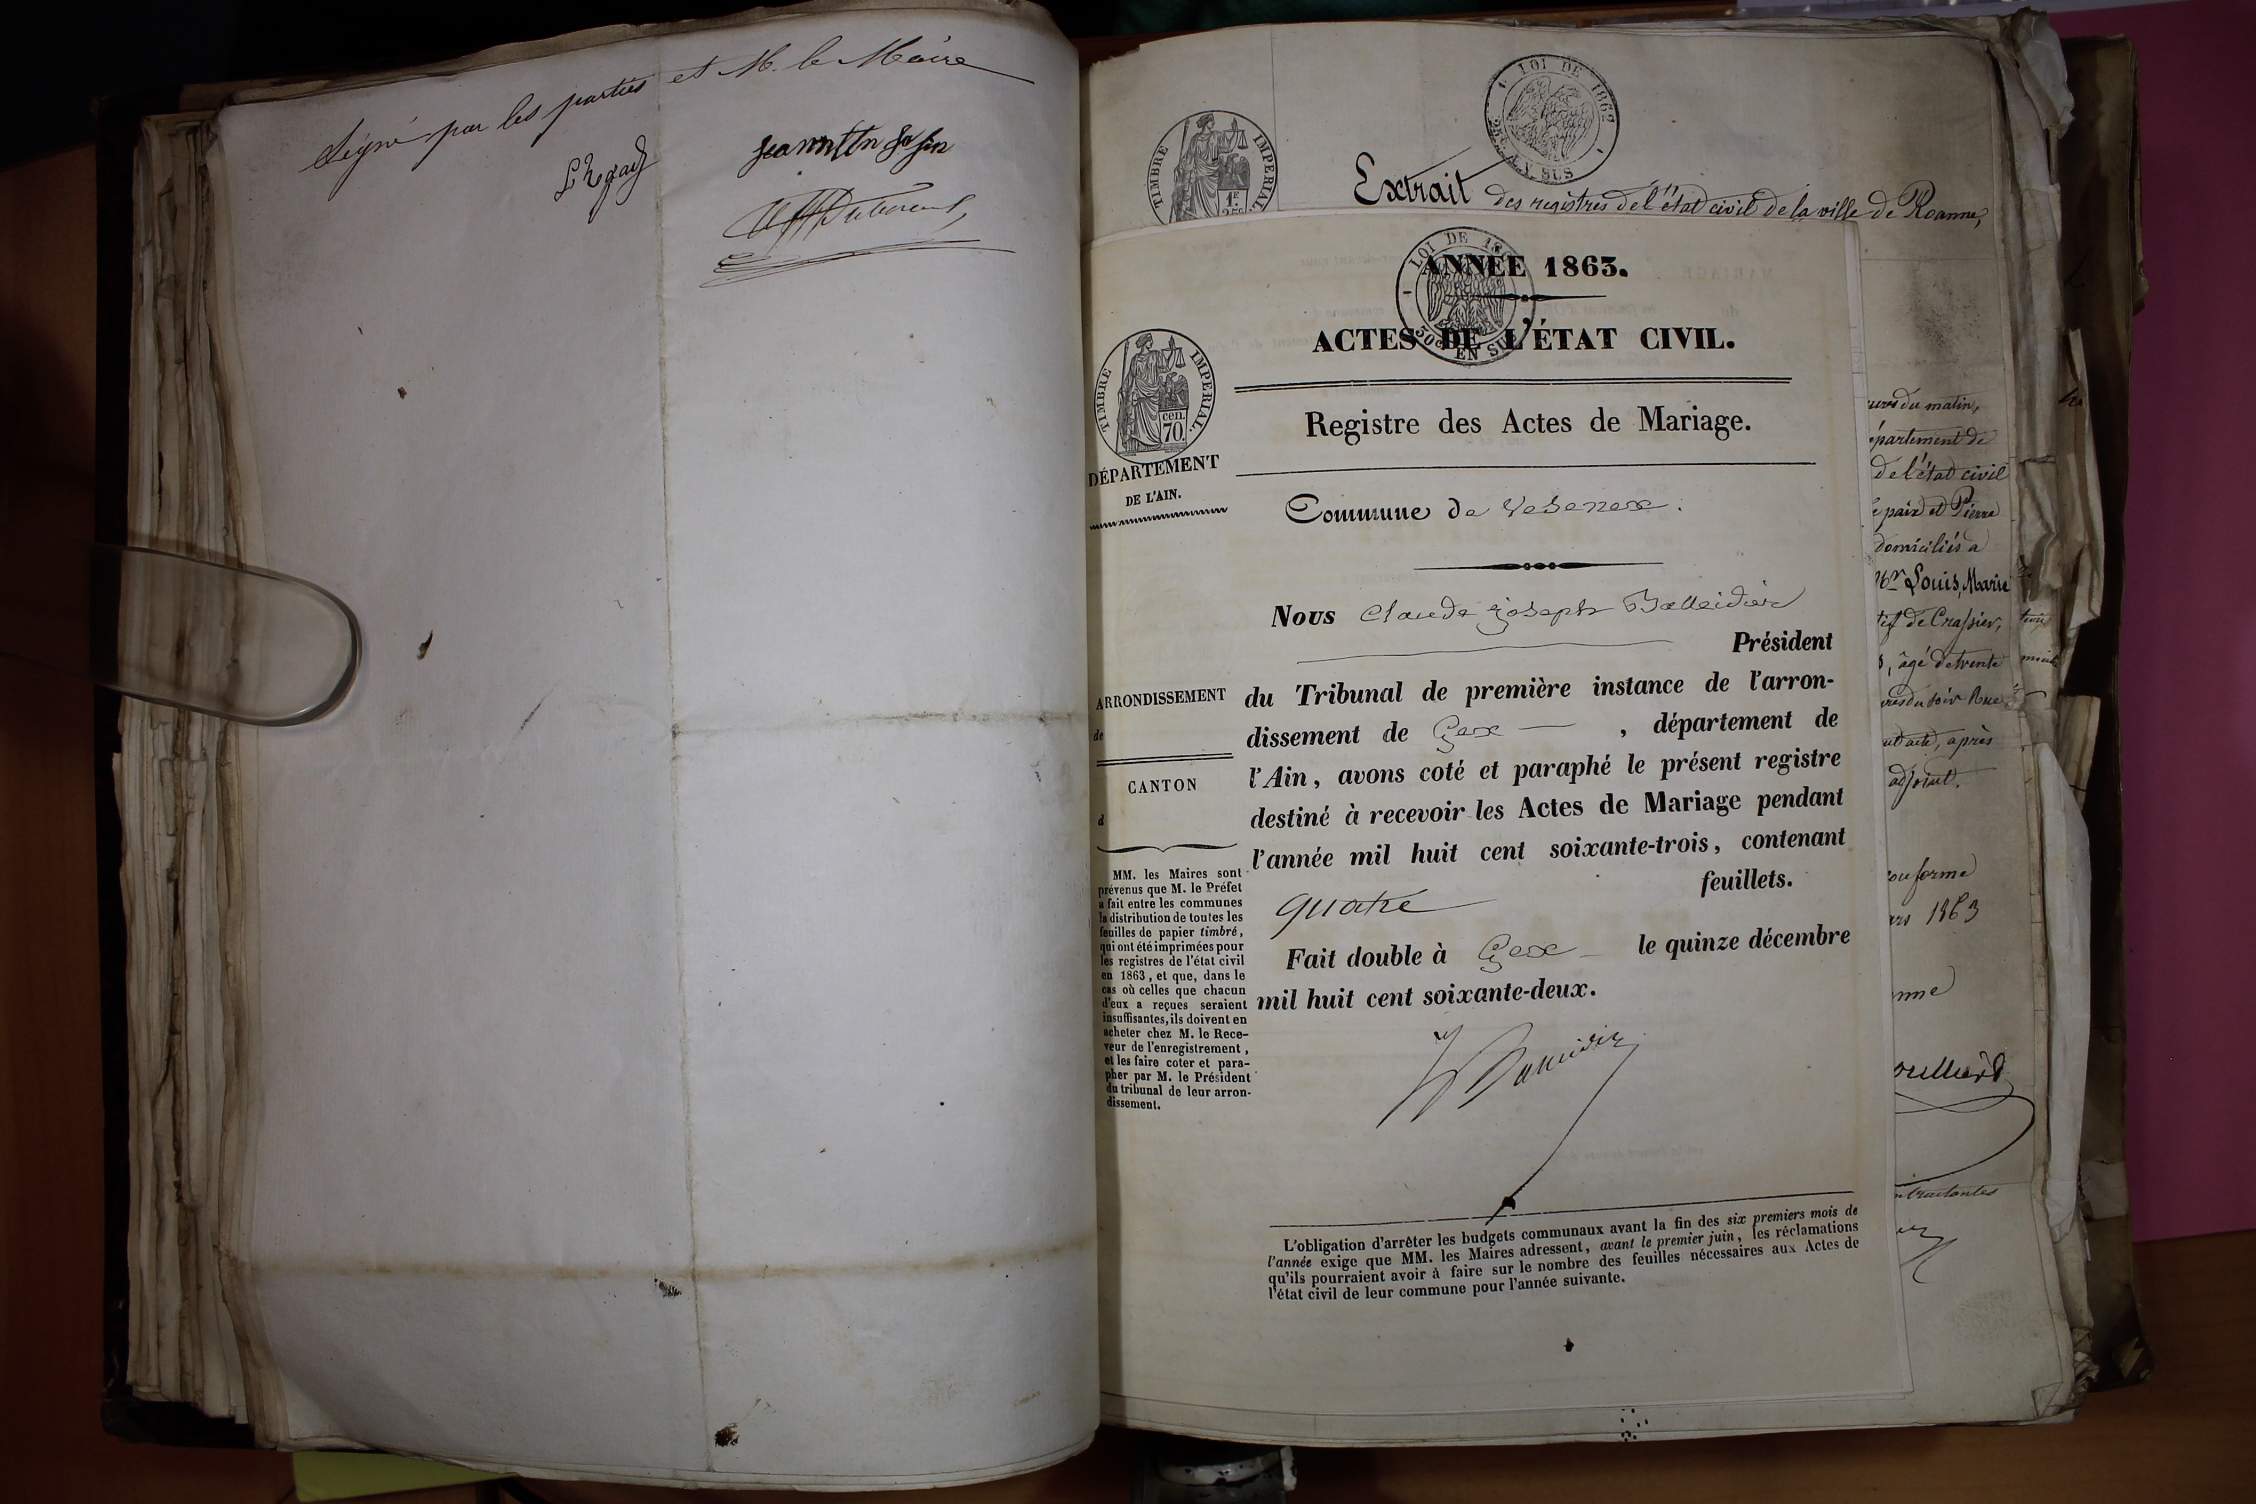 Signé par les parties et M. le Maire
LOI DE 1862
25c. EN SUS
TIMBRE IMPERIAL
1F.
25c
Extrait des registres de l'état civil de la ville de Roanne,
LOI DE
50c EN SUS
ANNÉE 1863.
ACTES DE L'ÉTAT CIVIL.
TIMBRE IMPERIAL.
cen.
70.
Registre des Actes de Mariage.
DÉPARTEMENT
DE L'AIN.
Commune de Vesenex.
Nous Claude Joseph Balleidier
Président
ARRONDISSEMENT
de
CANTON
d
du Tribunal de première instance de l'arron-
dissement de Gex, département de
l'Ain, avons coté et paraphé le présent registre
destiné à recevoir les Actes de Mariage pendant
l'année mil huit cent soixante-trois, contenant
quatre feuillets.
Fait double à Gex le quinze décembre
mil huit cent soixante-deux.
MM. les Maires sont
prévenus que M. le Préfet
a fait entre les communes
la distribution de toutes les
feuilles de papier timbré,
qui ont été imprimées pour
les registres de l'état civil
en 1863, et que, dans le
cas où celles que chacun
d'eux a reçues seraient
insuffisantes, ils doivent en
acheter chez M. le Rece-
veur de l'enregistrement,
et les faire coter et para-
pher par M. le Président
du tribunal de leur arron-
dissement.
Balleidier
L'obligation d'arrêter les budgets communaux avant la fin des six premiers mois de
l'année exige que MM. les Maires adressent, avant le premier juin, les réclamations
qu'ils pourraient avoir à faire sur le nombre des feuilles nécessaires aux Actes de
l'état civil de leur commune pour l'année suivante.
du matin,
épartement de
de l'état civil
paix et Pierre
domiciliés à
Mr Louis, Marie
de Crassier,
âgé de trente
du soir Rue
après
adjoint.
conforme
1863